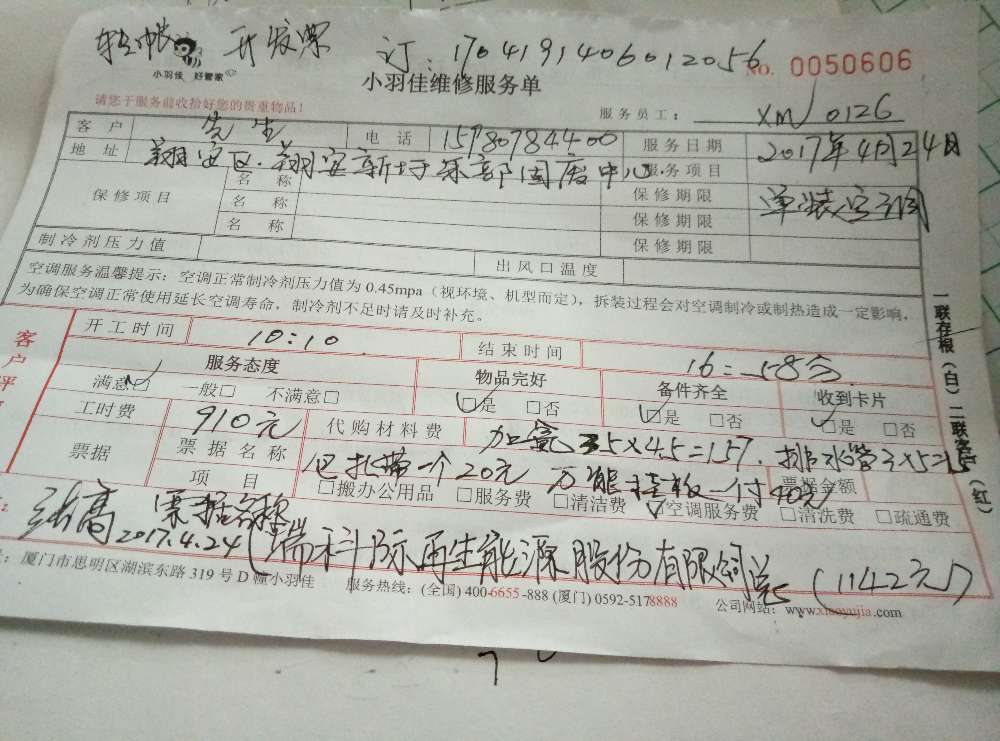 转帐 开发票 订:1704191406012056
小羽佳 好管家
小羽佳维修服务单
NO. 0050606
请您于服务前收拾好您的贵重物品!
服务员工: XM 0126
客户 先生 电话 15980784400 服务日期 2017年4月24日
地址 翔安区.翔安新圩 服务项目
保修项目 名称 保修期限 单装空调
名称 保修期限
名称 保修期限
制冷剂压力值 出风口温度
空调服务温馨提示:空调正常制冷剂压力值为0.45mpa(视环境、机型而定),拆装过程会对空调制冷或制热造成一定影响,
为确保空调正常使用延长空调寿命,制冷剂不足时请及时补充。
开工时间 10:10 结束时间 16:58分
客户评
服务态度 物品完好 备件齐全 收到卡片
满意☑ 一般□ 不满意□ ☑是 □否 ☑是 □否 ☑是 □否
工时费 910元 代购材料费 加氟35×4.5=157. 排水管3×5=15
票据 票据名称 包扎带一个20元 万能接板一付40元 票据金额
项目 □搬办公用品 □服务费 □清洁费 ☑空调服务费 □清洗费 □疏通费
张高 2017.4.24 票据名称(瑞科际再生能源股份有限公司 (1142元)
厦门市思明区湖滨东路319号D幢小羽佳 服务热线:(全国)400-6655-888 (厦门)0592-5178888 公司网站:www.xiaoyujia.com
一联存根(白)二联客(红)